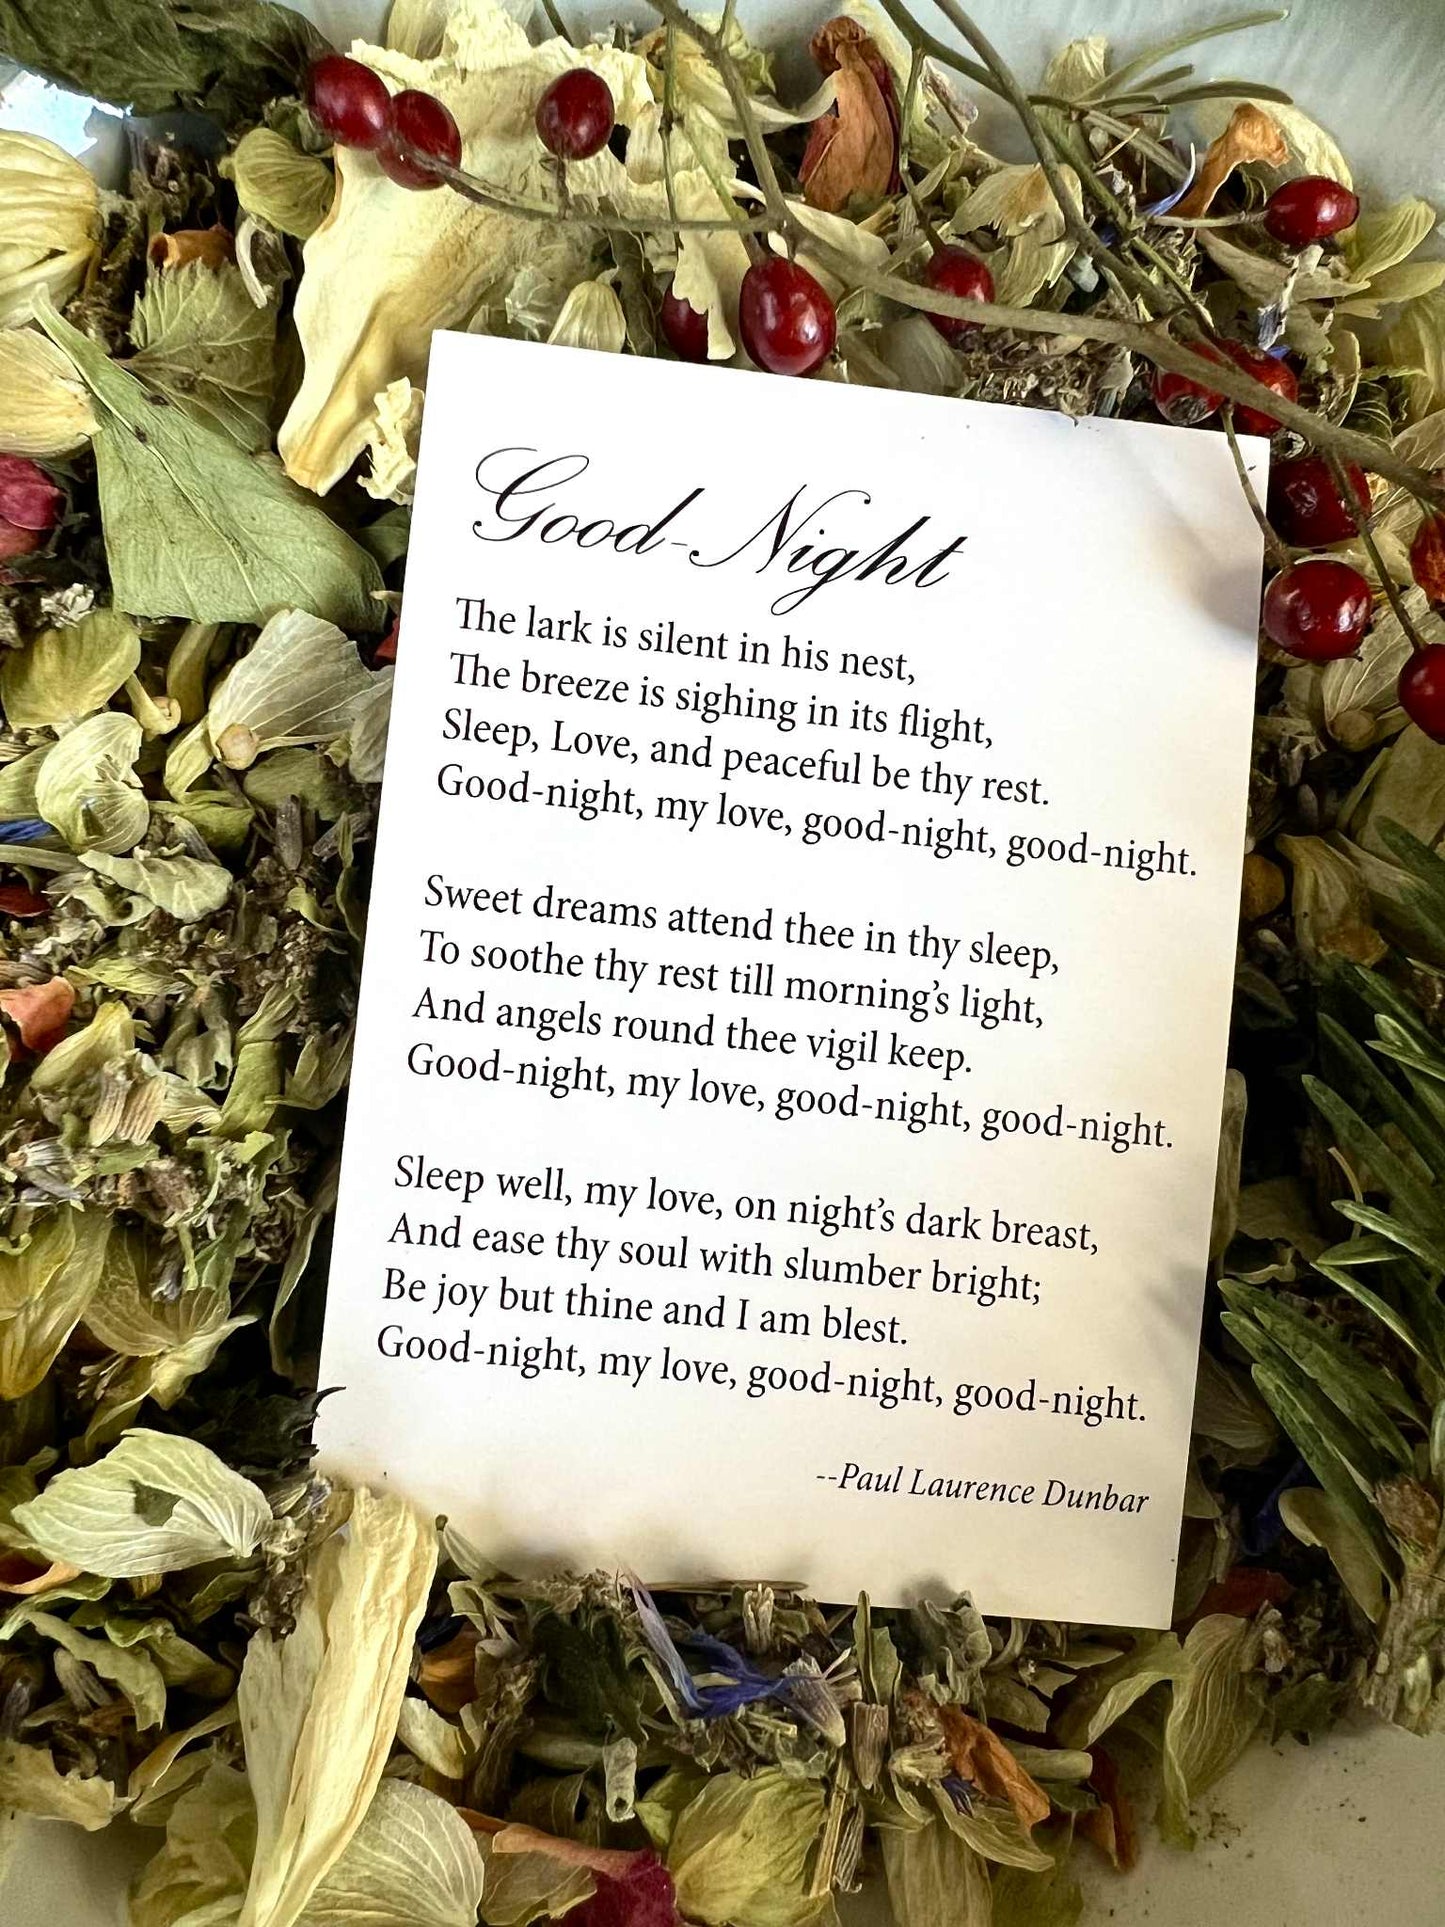 Good-Night
The lark is silent in his nest,
The breeze is sighing in its flight,
Sleep, Love, and peaceful be thy rest.
Good-night, my love, good-night, good-night.
Sweet dreams attend thee in thy sleep,
To soothe thy rest till morning’s light,
And angels round thee vigil keep.
Good-night, my love, good-night, good-night.
Sleep well, my love, on night’s dark breast,
And ease thy soul with slumber bright;
Be joy but thine and I am blest.
Good-night, my love, good-night, good-night.
--Paul Laurence Dunbar